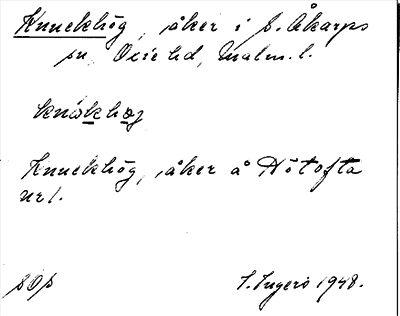 Knuckhög, åker i s. Åkarps
sn, Oxie hd, Malm. l.
knøkhøj
Knuckhög, åker å Hötofta
nr 1.
I. Ingers 1948.